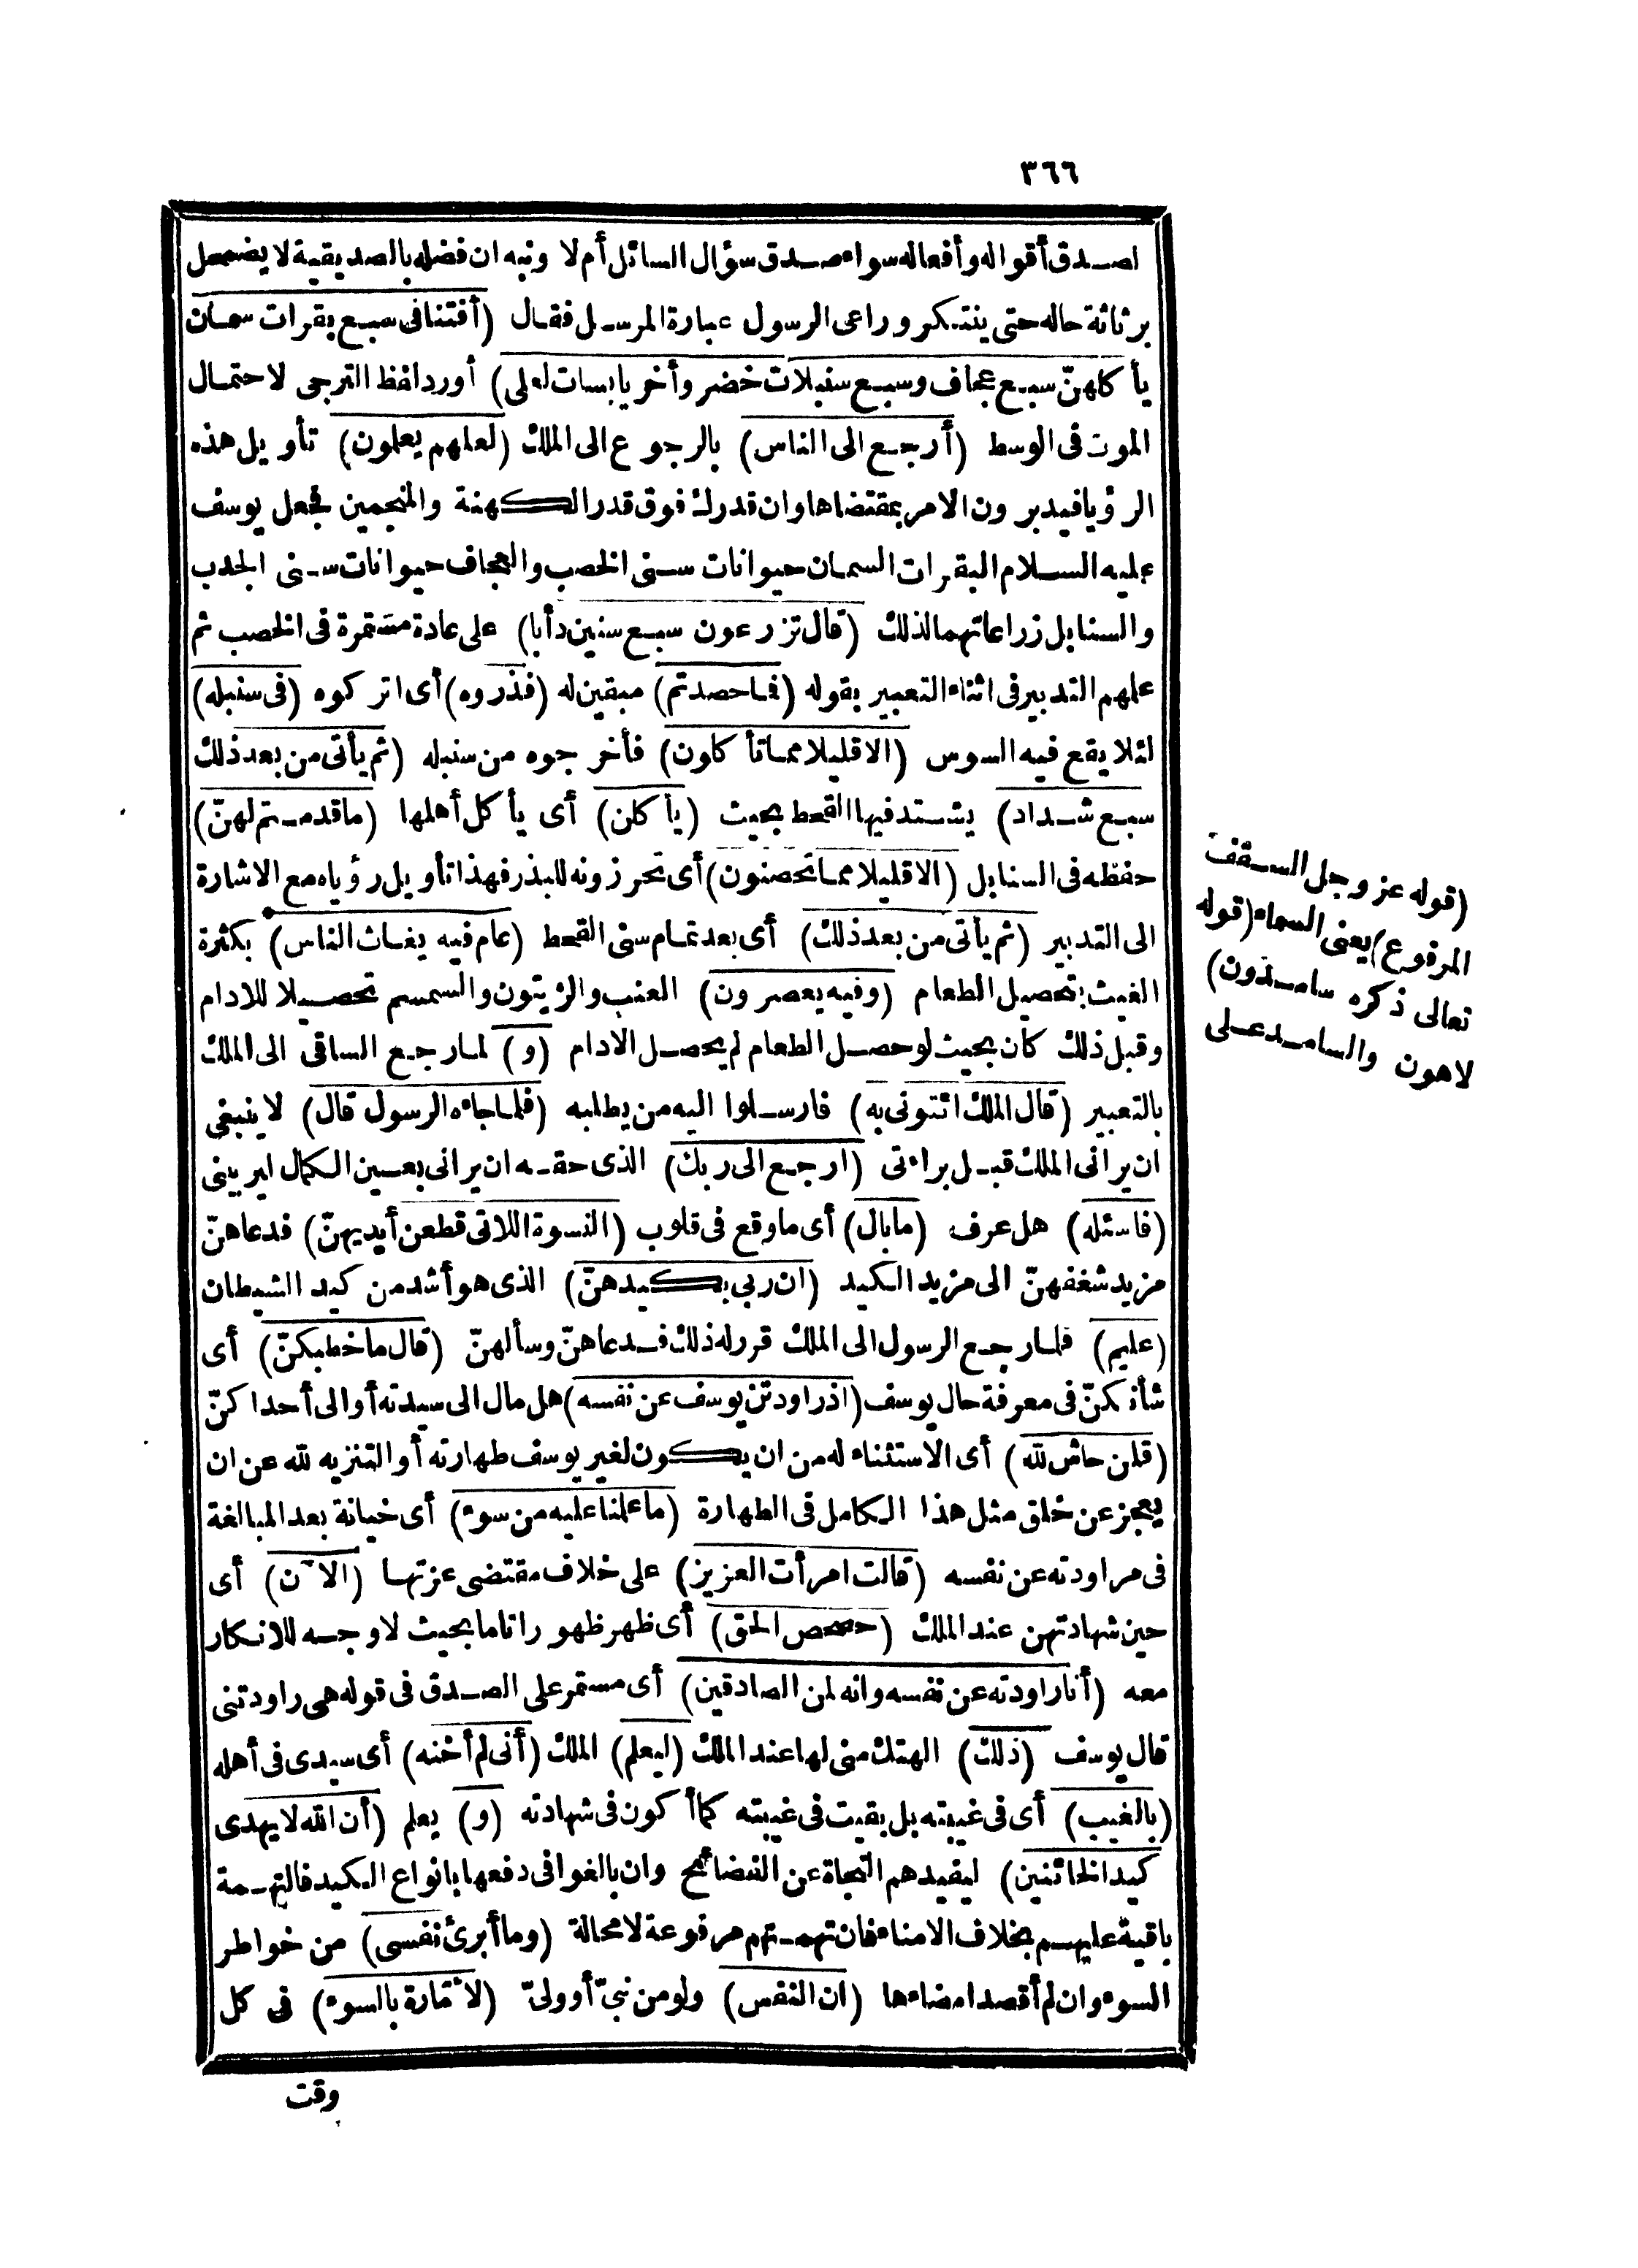 ٣٦٦
لصدق أقواله وأفعاله سواء صدق سؤال السائل أم لا ونبه ان فضله بالصديقية لا يضمحل
برثاثة حاله حتى ينتكر وراعى الرسول عبارة المرسل فقال (أفتنا فى سبع بقرات سمان
يأكلهنّ سبع عجاف وسبع سنبلات خضر وأخر يابسات لعلى) أورد لفظ الترجى لاحتمال
الموت فى الوسط (أرجع الى الناس) بالرجوع الى الملك (لعلهم يعلمون) تأويل هذه
الرؤيا فيدبرون الامر بمقتضاها وان قدرك فوق قدر الكهنة والمنجمين فجعل يوسف
عليه السلام البقرات السمان حيوانات سنى الخصب والعجاف حيوانات سنى الجدب
والسنابل زراعاتهما لذلك (قال تزرعون سبع سنين دأبا) على عادة مستمرة فى الخصب ثم
علمهم التدبير فى اثناء التعبير بقوله (فما حصدتم) مبقين له (فذروه) أى اتركوه (فى سنبله)
لئلا يقع فيه السوس (الا قليلا مما تأكلون) فأخرجوه من سنبله (ثم يأتى من بعد ذلك
سبع شداد) يشتد فيها القحط بحيث (يأكلن) أى يأكل أهلها (ما قدمتم لهنّ)
حفظه فى السنابل (الا قليلا مما تحصنون) أى تحرزونه للبذر فهذا تأويل رؤياه مع الاشارة
الى التدبير (ثم يأتى من بعد ذلك) أى بعد تمام سنى القحط (عام فيه يغاث الناس) بكثرة
الغيث بتحصيل الطعام (وفيه يعصرون) العنب والزيتون والسمسم تحصيلا للادام
وقبل ذلك كان بحيث لو حصل الطعام لم يحصل الادام (و) لما رجع الساقى الى الملك
بالتعبير (قال الملك ائتونى به) فارسلوا اليه من يطلبه (فلما جاءه الرسول قال) لا ينبغى
ان يرانى الملك قبل براءتى (ارجع الى ربك) الذى حقه ان يرانى بعين الكمال ليربينى
(فاسئله) هل عرف (ما بال) أى ما وقع فى قلوب (النسوة اللاتى قطعن أيديهنّ) فدعاهنّ
مزيد شغفهنّ الى مزيد الكيد (ان ربى بكيدهنّ) الذى هو أشد من كيد الشيطان
(عليم) فلما رجع الرسول الى الملك قرر له ذلك فدعاهنّ وسألهنّ (قال ما خطبكنّ) أى
شأنكنّ فى معرفة حال يوسف (اذ راودتن يوسف عن نفسه) هل مال الى سيدته أو الى أحداكنّ
(قلن حاش لله) أى الاستثناء له من ان يكون لغير يوسف طهارته أو التنزيه لله عن ان
يعجز عن خلق مثل هذا الكامل فى الطهارة (ما علمنا عليه من سوء) أى خيانة بعد المبالغة
فى مراودته عن نفسه (قالت امرأت العزيز) على خلاف مقتضى عزتها (الآن) أى
حين شهادتهن عند الملك (حصحص الحق) أى ظهر ظهورا تاما بحيث لا وجه للانكار
معه (أنا راودته عن نفسه وانه لمن الصادقين) أى مستمر على الصدق فى قوله هى راودتنى
قال يوسف (ذلك) الهتك منى لها عند الملك (ليعلم) الملك (أنى لم أخنه) أى سيدى فى أهله
(بالغيب) أى فى غيبته بل بقيت فى غيبته كما أكون فى شهادته (و) يعلم (أن الله لا يهدى
كيد الخائنين) ليفيدهم النجاة عن الفضائح وان بالغوا فى دفعها بانواع الكيد فالتهمة
باقية عليهم بخلاف الامناء فان تهمتهم مرفوعة لا محالة (وما أبرئ نفسى) من خواطر
السوء وان لم أقصد امضاءها (ان النفس) ولو من نبىّ أو ولىّ (لأمّارة بالسوء) فى كل
وقت
(قوله عز وجل السقف
المرفوع) يعنى السماء (قوله
تعالى ذكره سامدون)
لاهون والسامد على